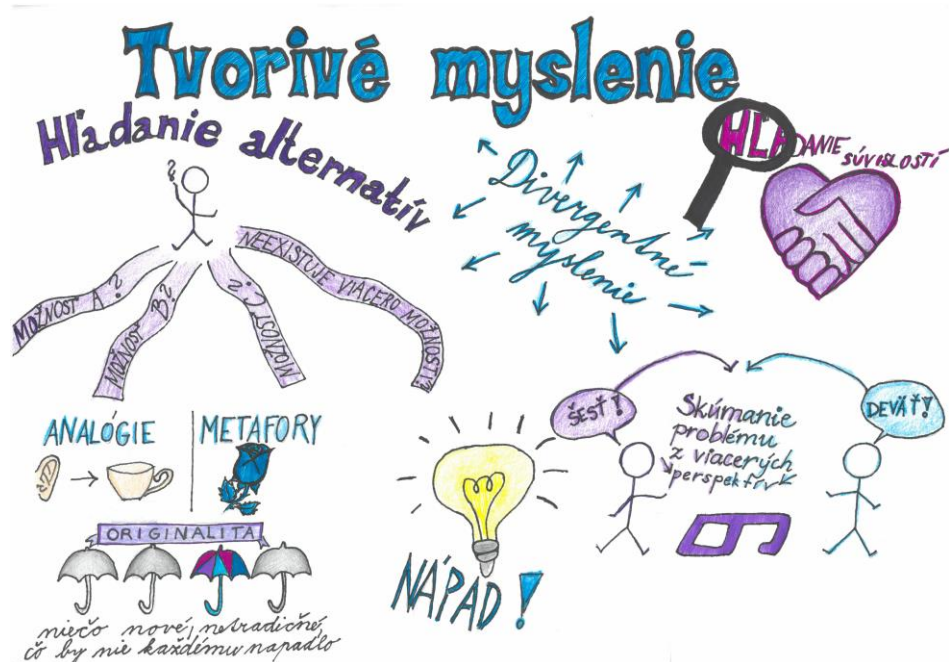 Tvorivé myslenie
Hľadanie alternatív
?
MOŽNOSŤ A?
MOŽNOSŤ B?
MOŽNOSŤ C?
NEEXISTUJE VIACERO MOŽNOSTÍ?
Divergentné
myslenie
HĽADANIE
SÚVISLOSTÍ
ANALÓGIE
METAFORY
ORIGINALITA
niečo nové, netradičné,
čo by nie každému napadlo
NÁPAD!
ŠESŤ!
Skúmanie
problému
z viacerých
perspektív
DEVÄŤ!
6